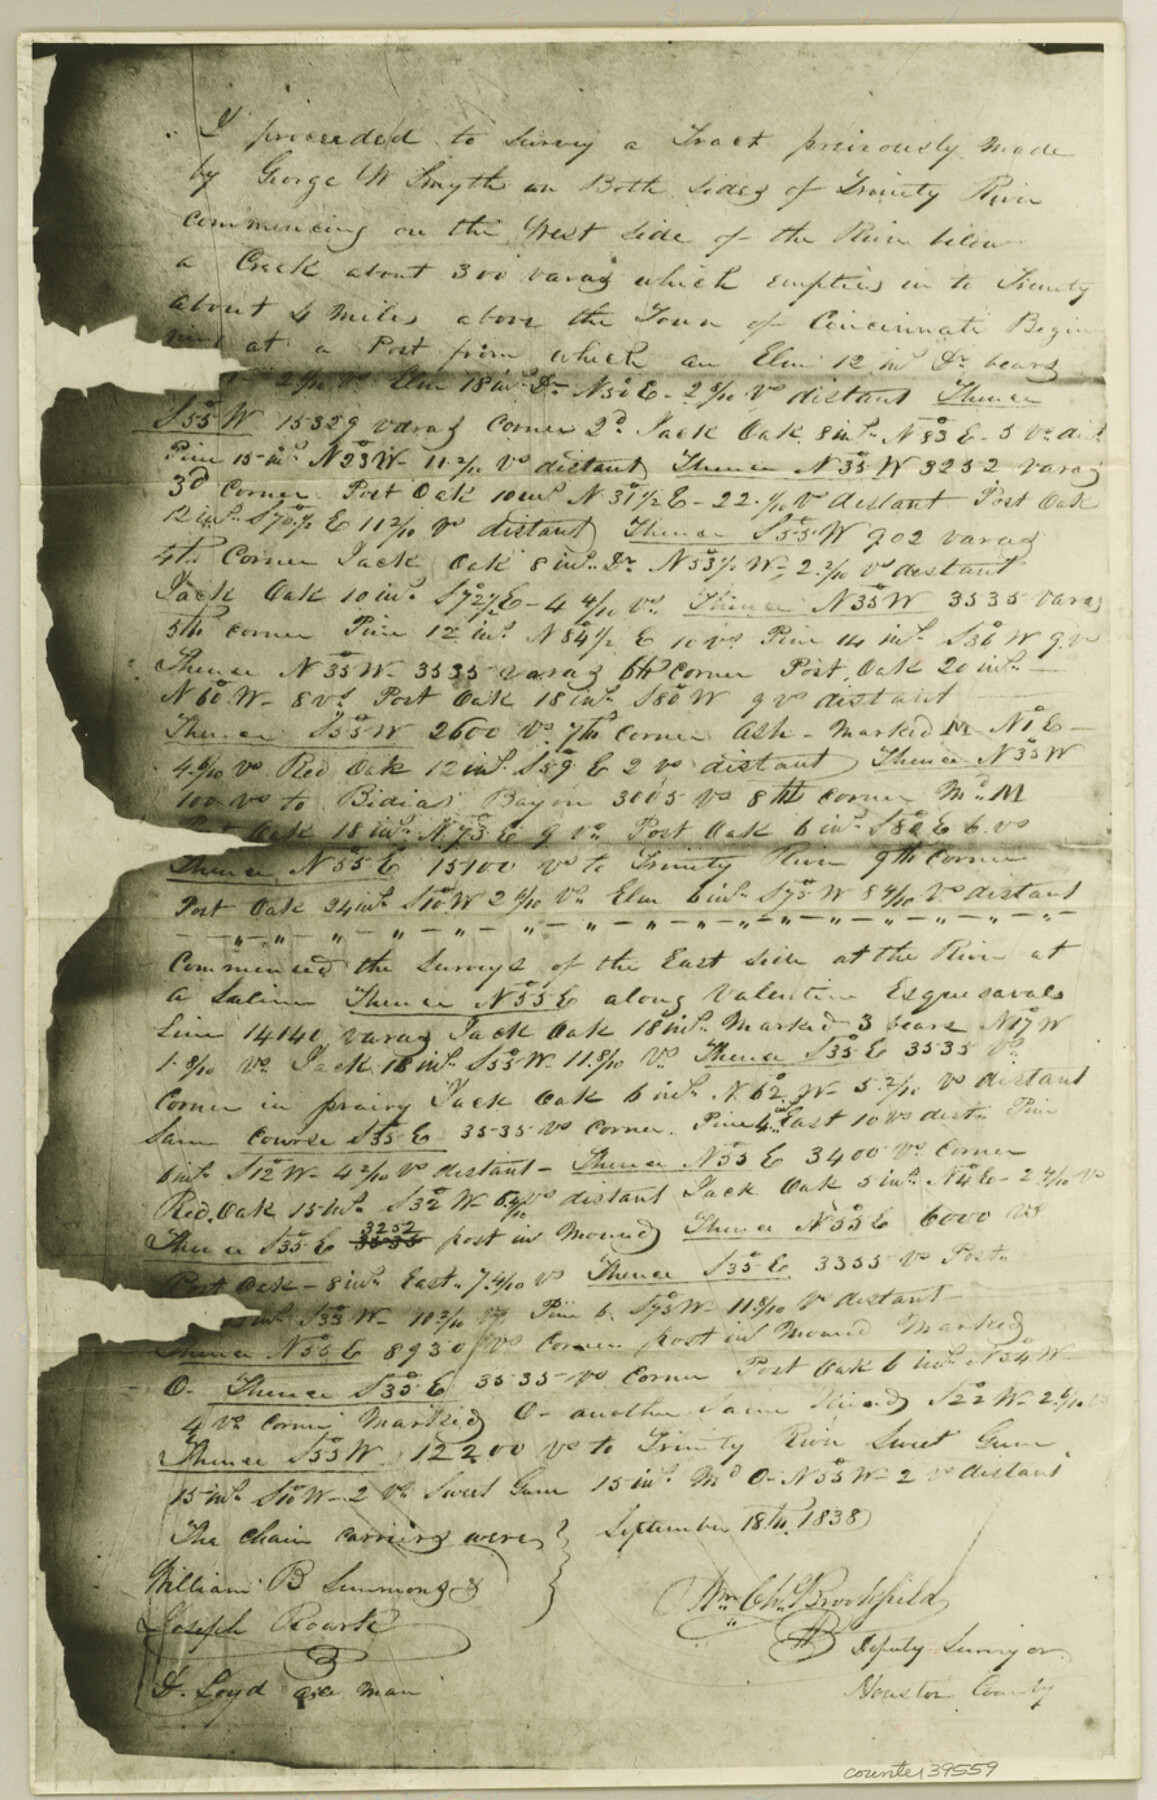 I proceeded to survey a Tract previously made
by George W Smyth on Both sides of Trinity River
commencing on the West side of the River below
a Creek about 300 varas which empties in to Trinity
about 4 miles above the Town of Cincinnati Begin
ning at a Post from which an Elm 12 ins Dr bears
2 4/10 vs Elm 18 ins Dr N50E - 2 8/10 vs distant Thence
S55W 15329 varas corner 2d. Jack Oak 8 ins N83E - 5 vs dist
Pine 15 ins N23W - 11 2/10 vs distant Thence N35W 3252 varas
3d corner Post Oak 10 ins N31½E - 22 1/10 vs distant Post Oak
12 ins S70½E 11 2/10 vs distant Thence S55W 902 varas
4th Corner Jack Oak 8 ins Dr N53½W - 2 2/10 vs distant
Jack Oak 10 ins S72½E - 4 4/10 vs. Thence N35W 3535 varas
5th corner Pine 12 ins N84½E 10 vs Pine 14 ins S36W 9 vs
Thence N35W - 3535 varas 6th corner Post Oak 20 ins
N60W - 8 vs Post Oak 18 ins S80W 9 vs distant
Thence S55W 2600 vs 7th corner Ash - marked M N1E -
4 6/10 vs Red Oak 12 ins S59E 2 vs distant Thence N35W
100 vs to Bidias Bayou 3005 vs 8th corner Md M
Post Oak 18 ins N73E 9 vs Post Oak 6 ins S80E 6 vs
Thence N55E 15100 vs to Trinity River 9th corner
Post Oak 24 ins S10W 2 6/10 vs Elm 6 ins S75W 8 4/10 vs distant
— — " — " — " — " — " — " — " — " — " — " — " — " —
Commenced the surveys of the East side at the River at
a Saline Thence N55E along Valentin Esquesavals
Line 14140 varas Jack Oak 18 ins marked 3 bears N17W
1 8/10 vs Jack 18 ins S55W - 11 8/10 vs Thence S35E 3535 vs
Corner in prairy Jack Oak 6 ins N.62.W - 5 2/10 vs distant
Same course S35E 3535 vs corner. Pine 4 ins East 10 vs dist. Pine
6 ins S12W - 4 2/10 vs distant - Thence N55E 3400 vs corner
Red. Oak 15 ins S32W - 6 4/10 vs distant Jack Oak 5 ins N4E - 2 4/10 vs
Thence S35E 3252 post in Mound Thence N55E 6000 vs
Post Oak - 8 ins East. 7.4/10 vs Thence S35E. 3355 vs Post
ins S33W - 10 3/10 vs, Pine 6. S75W - 11 8/10 vs distant
Thence N55E 8930 vs corner post in Mound Marked
O - Thence S35E 3535 vs corner Post Oak 6 ins N54.W -
4 vs corner Marked O - another same kind S22W - 2 6/10 vs
Thence S55W 12200 vs to Trinity River Sweet Gum
15 ins S10W - 2 vs Sweet Gum 15 ins Md O - N55W - 2 vs distant
The chain carriers were September 18th. 1838
William B Simmons &
Joseph Roark
Wm Chs Brookfield
Deputy Surveyor
D. Loyd axe man
Houston County
counter 39559